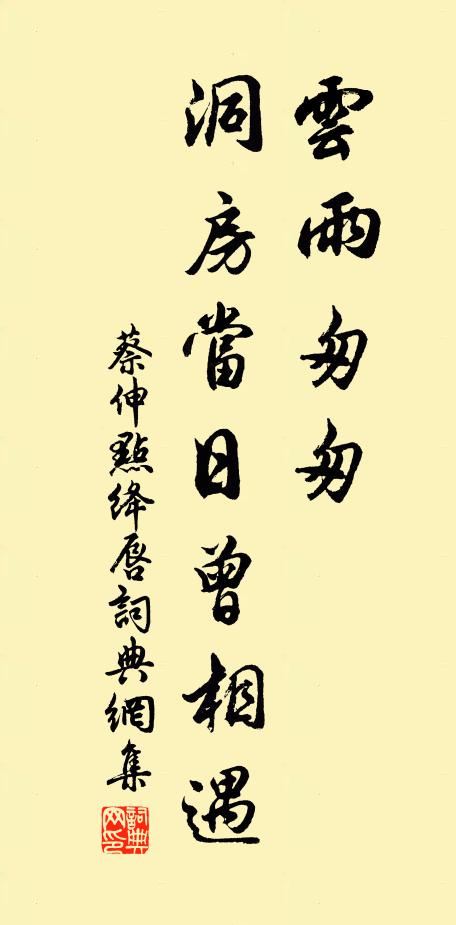 雲雨匆匆
洞房當日曾相遇
蔡伸點絳唇詞典網集
詞典
网印